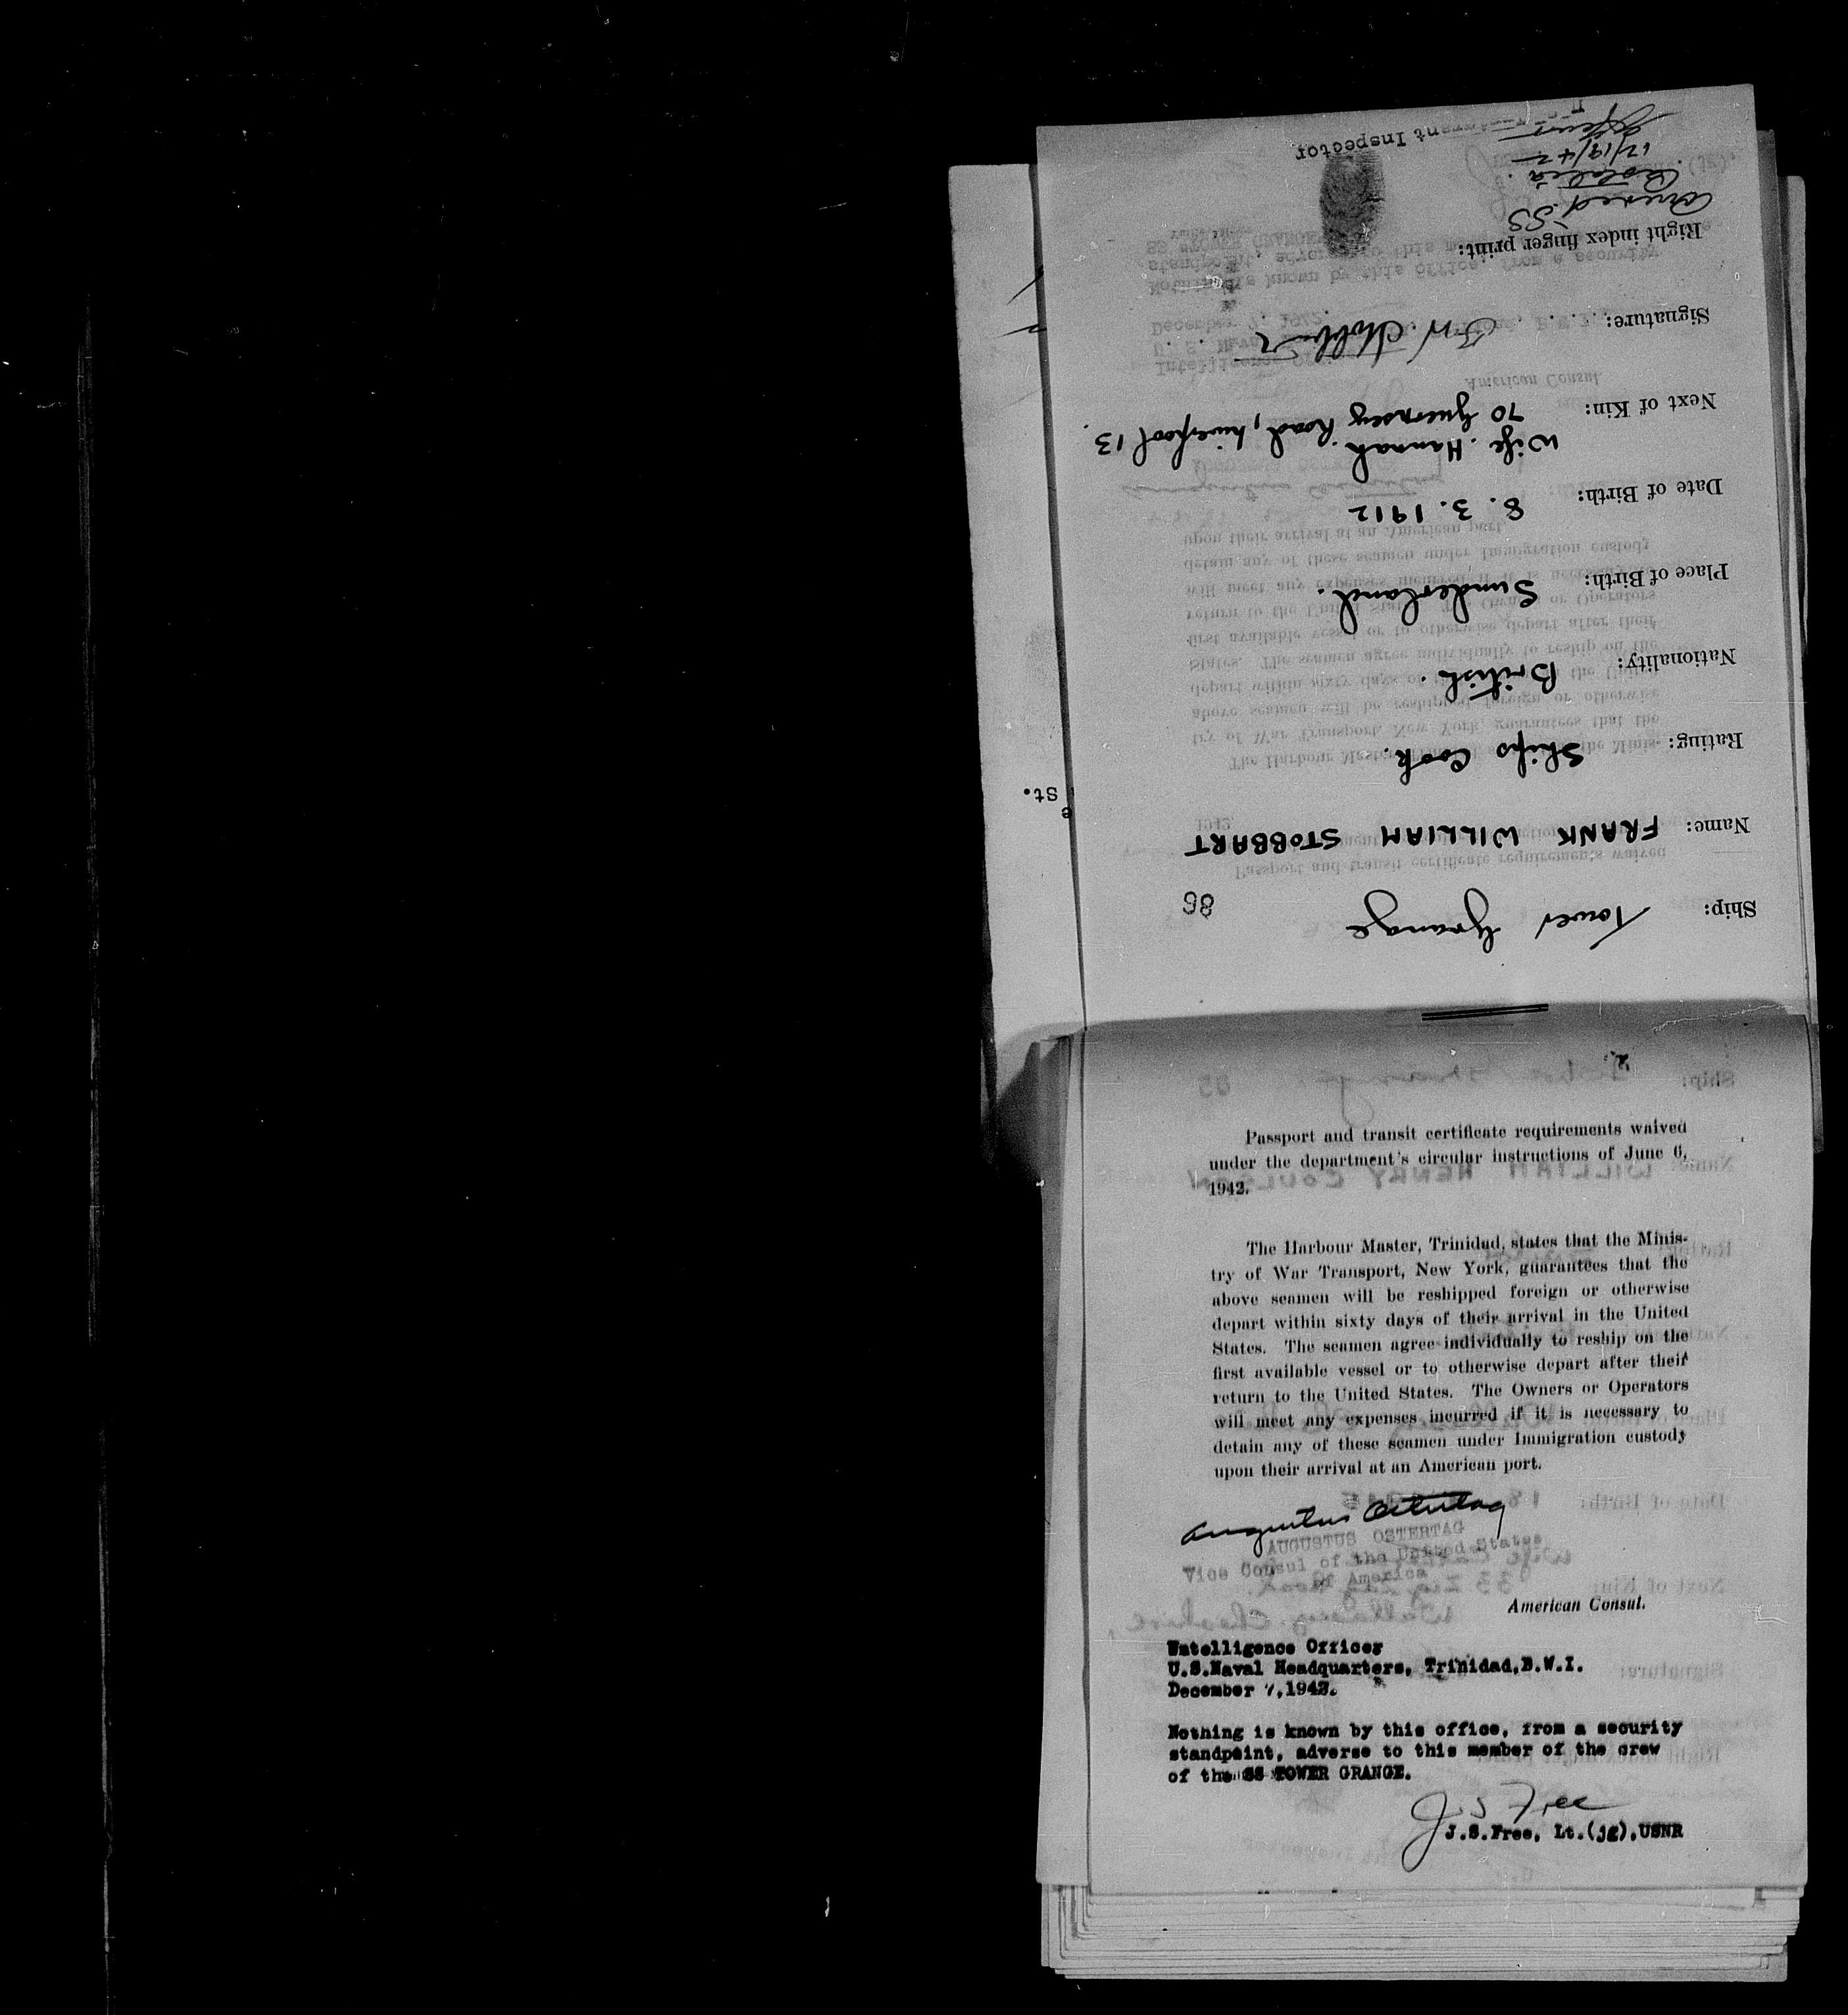 Ship: Tower Grange 86
Name: FRANK WILLIAM STOBBART
Rating: Ships Cook.
Nationality: British.
Place of Birth: Sunderland.
Date of Birth: 8. 3. 1912
Wife. Hannah.
Next of Kin: 70 Guernsey Road, Liverpool 13.
Signature: F W. Stobbart
Right index finger print:
Arrived SS
12/19/42
Inspector
St.
e
2
Passport and transit certificate requirements waived
under the department's circular instructions of June 6,
1942.
The Harbour Master, Trinidad, states that the Minis-
try of War Transport, New York, guarantees that the
above seamen will be reshipped foreign or otherwise
depart within sixty days of their arrival in the United
States. The seamen agree individually to reship on the
first available vessel or to otherwise depart after their
return to the United States. The Owners or Operators
will meet any expenses incurred if it is necessary to
detain any of these seamen under Immigration custody
upon their arrival at an American port.
Augustus Ostertag
AUGUSTUS OSTERTAG
Vice Consul of the United States
Of America
American Consul.
Watelligence Officer
U.S.Naval Headquarters, Trinidad,B.W.I.
December 7,1942.
Nothing is known by this office, from a security
standpoint, adverse to this member of the crew
of the SS TOWER GRANGE.
J. S Free
J.S.Free, Lt.(jg),USNR